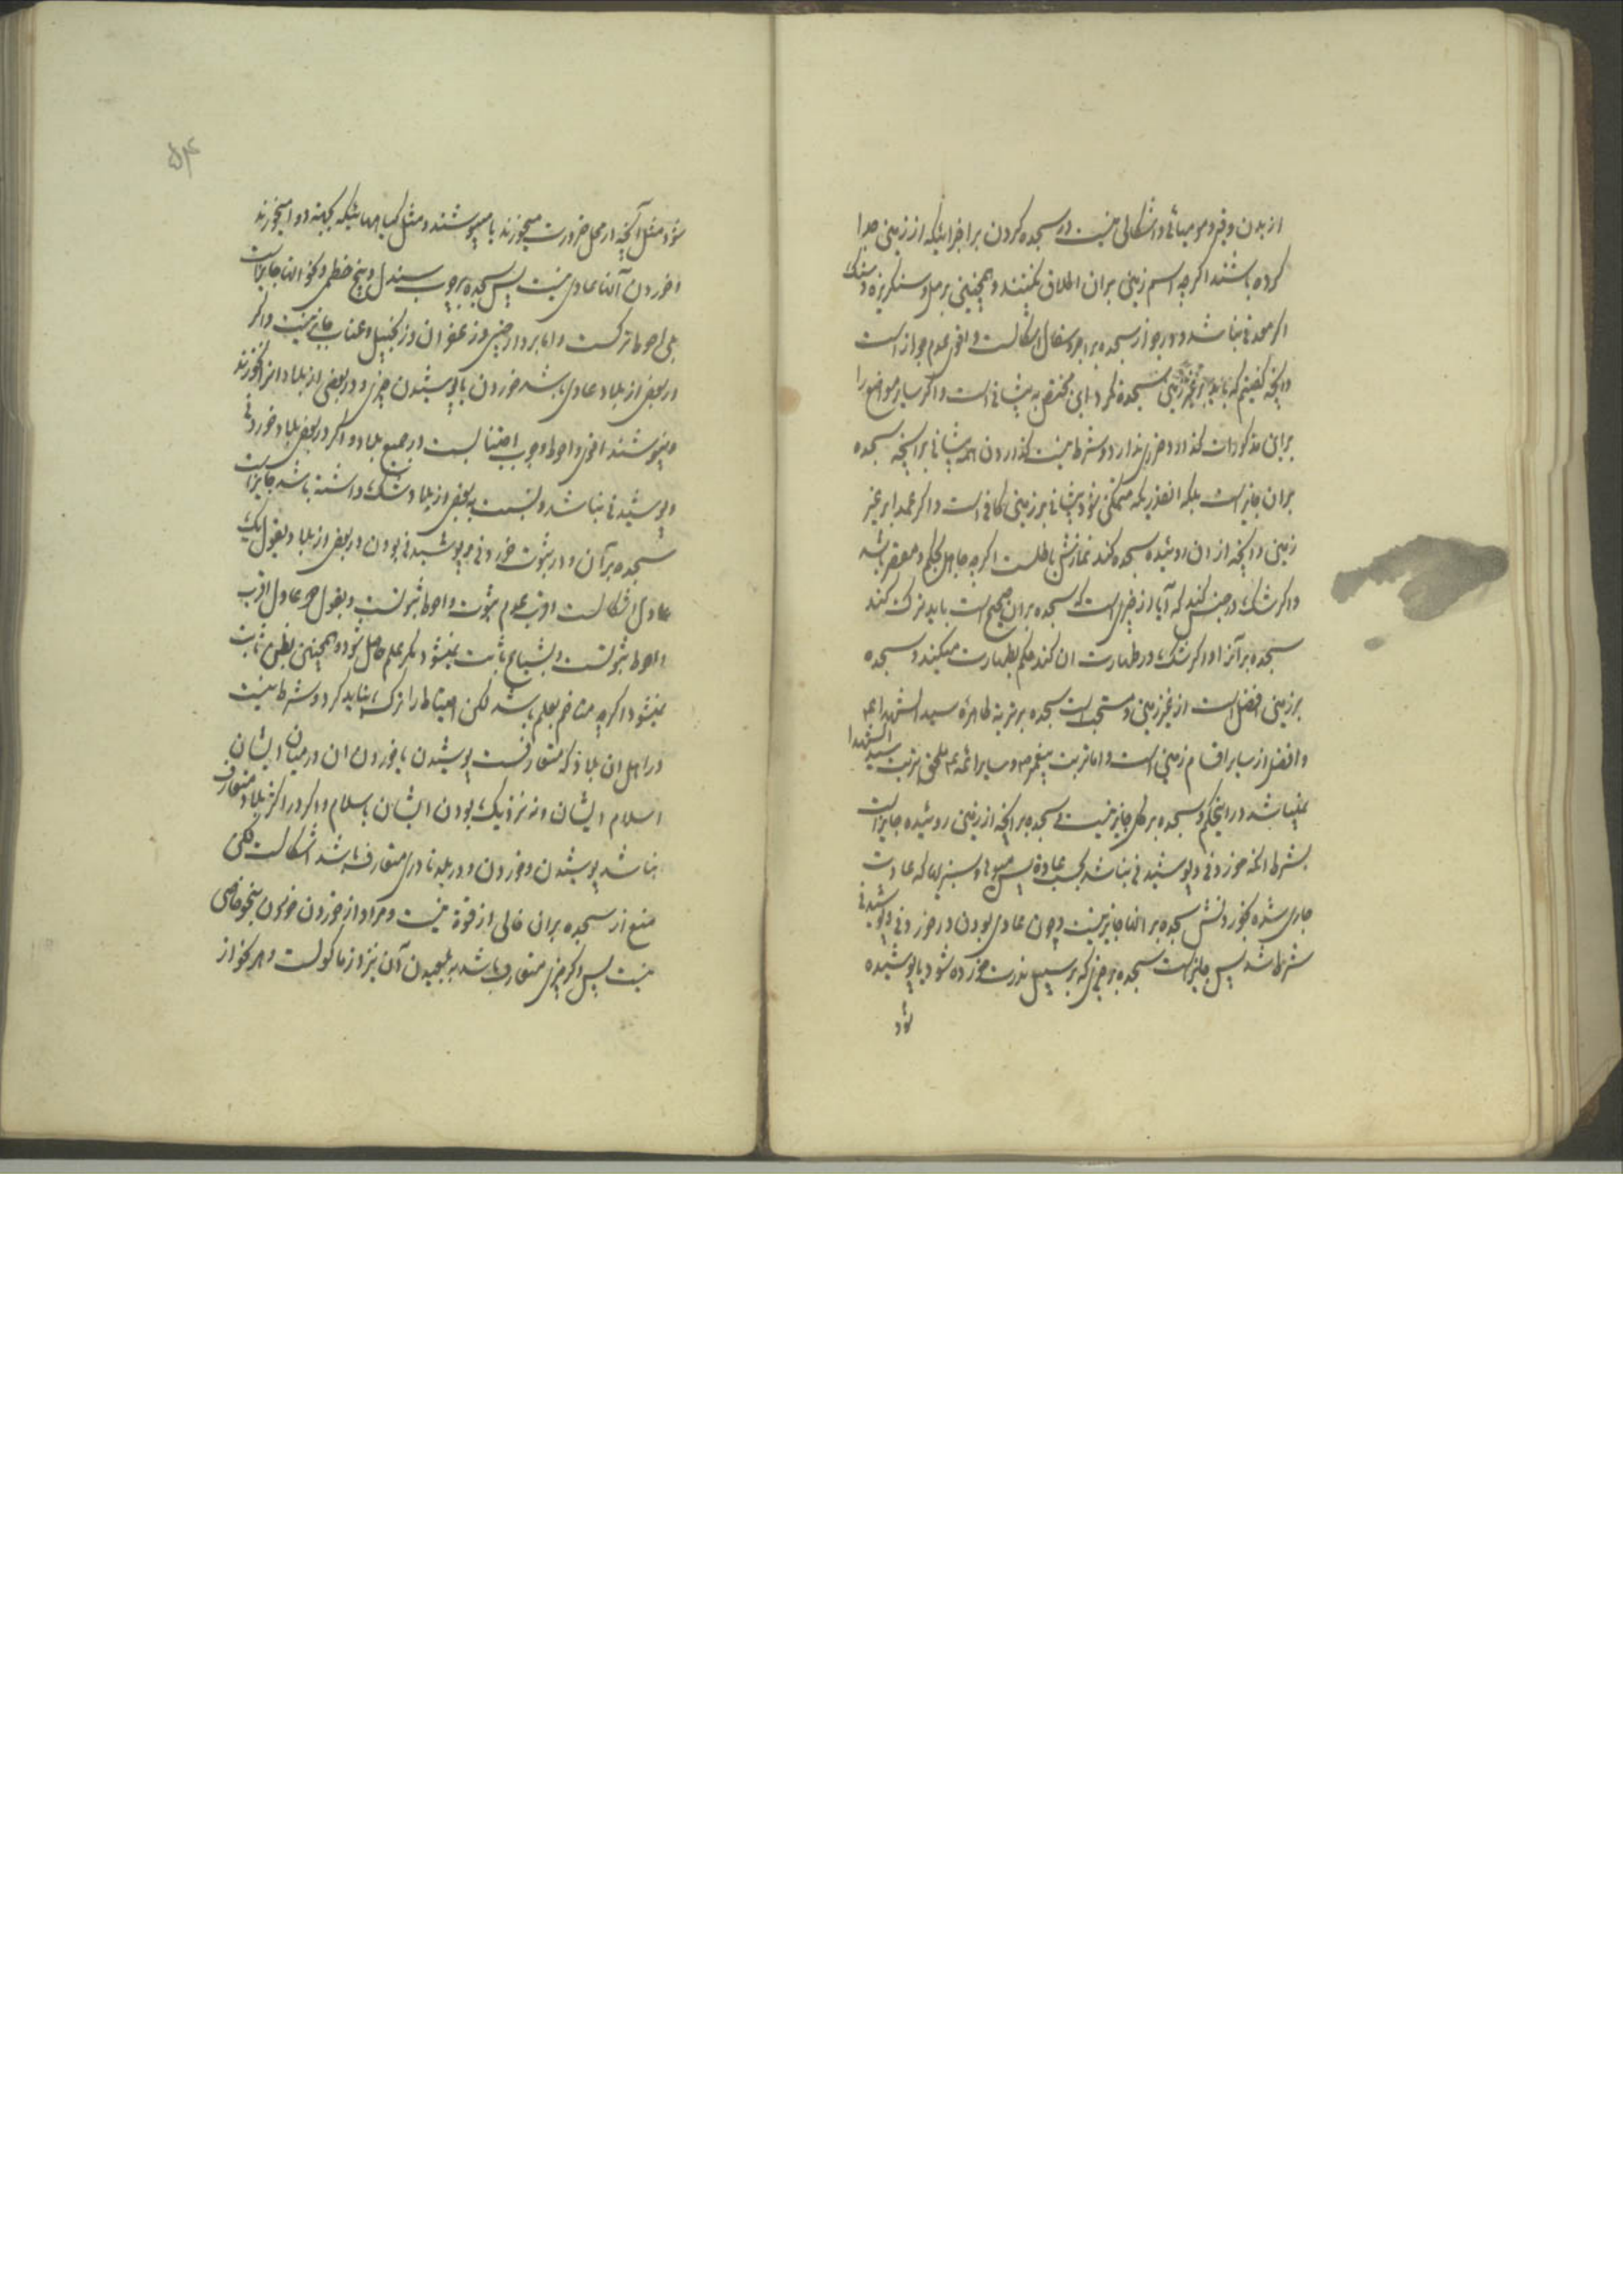 از بدن وقیر و مومیائی و اشکالی نیست در سجده کردن بر اجزائیکه از زمین جدا
کرده باشند اگرچه اسم زمین بران اطلاق نکنند و همچنین بر رمل و سنگریزه و سنگ
اگر معدنی نباشد و در جواز سجده بر اجر و سفال اشکالست و اقوی عدم جواز است
و آنچه گفتیم که باید بر غیر زمین سجده نکرد این مختص به پیشانی است و اگر سایر مواضع را
بر این مذکورات گذارد ضرر ندارد و شرط نیست گذاردن همه پیشانی بر آنچه سجده
بران جایز است بلکه انقدریکه متمکن شود پیشانی بر زمین کافی است و اگر عمدا بر غیر
زمین و آنچه از ان روئیده سجده کند نمازش باطلست اگرچه جاهل بحکم و مقصر باشد
و اگر شک در جنس کند که آیا از چیزی است که سجده بران صحیح است باید ترک کند
سجده بر آنرا و اگر شک در طهارت ان کند حکم بطهارت میکند و سجده
بر زمین افضل است از غیر زمین و مستحب است سجده بر تربة طاهرة سید الشهداء ع
و افضل از سایر اقسام زمین است و اما تربت پیغمبر ص و سایر ائمه ع ملحق بتربت سید الشهدا
نمیباشد در اینحکم و سجده بر گل جایز نیست سجده بر آنچه از زمین روئیده جایز است
بشرط انکه خوردنی و پوشیدنی نباشد بحسب عادة پس میوها و سبزیها که عادت
جاری شده بخوردنش سجده بر آنها جایز نیست و چون عادی بودن در خوردنی و پوشیدنی
شرط شد پس جایز است سجده بر چیزی که بر سبیل ندرت خورده شود یا پوشیده
شود
۵۴
شود مثل آنچه در محل ضرورت میخورند یا میپوشند و مثل گیاههائیکه بجهة دوا میخورند
و خوردن آنها عادی نیست پس سجده بر چوب سندل و بیخ خطمی و نحو انها جایز است
بلی احوط ترکست و اما بر دارچینی و زعفران و زنجبیل و عناب جایز نیست و اگر
در بعض از بلاد عادی باشد خوردن یا پوشیدن چیزی و در بعضی از بلاد انرا نخورند
و نپوشند اقوی و احوط وجوب اجتنابست در جمیع بلاد و اگر در بعض بلاد خوردنی
و پوشیدنی نباشد و نسبت ببعض از بلاد شک داشته باشد جایز است
سجده بر آن و در ثبوت خوردنی و پوشیدنی بودن در بعض از بلاد بقول یک
عادل اشکالست اقرب عدم ثبوت و احوط ثبوتست و بقول دو عادل اقرب
و احوط ثبوتست و بشیاع ثابت نمیشود مگر علم حاصل شود و همچنین بظن ثابت
نمیشود اگرچه متاخم بعلم باشد لکن احتیاط را ترک نباید کرد و شرط نیست
در اهل ان بلاد که متعارفست پوشیدن یا خوردن ان در میان ایشان
اسلام ایشان و نه نزدیک بودن ایشان باسلام و اگر در اکثر بلاد متعارف
نباشد پوشیدن و خوردن و در بلد نادری متعارف باشد اشکالست لکن
منع از سجده بران خالی از قوة نیست و مراد از خوردن خوردن بنحو خاصی
نیست پس اگر چیزی متعارف باشد بلعیدن آن نیز از ماکولست و هر نحو از